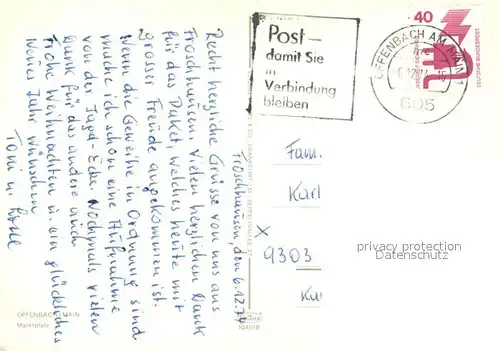 Fröschhausen, den 6.12.74
Recht herzliche Grüsse von uns aus
Fröschhausen. Vielen herzlichen Dank
für das Paket, welches heute mit
grosser Freude angekommen ist.
Wenn die Geweihe in Ordnung sind
mache ich schon eine Aufnahme
von der Jagd-Ecke. Nochmals vielen
Dank für das andere auch
Frohe Weihnachten u. ein glückliches
Neues Jahr wünschen
Toni u.
OFFENBACH/MAIN
Marktplatz
Post –
damit Sie
in
Verbindung
bleiben
OFFENBACH AM MAIN 1
605
40
DEUTSCHE BUNDESPOST
Fam.
Karl
x
9303
privacy protection
Datenschutz